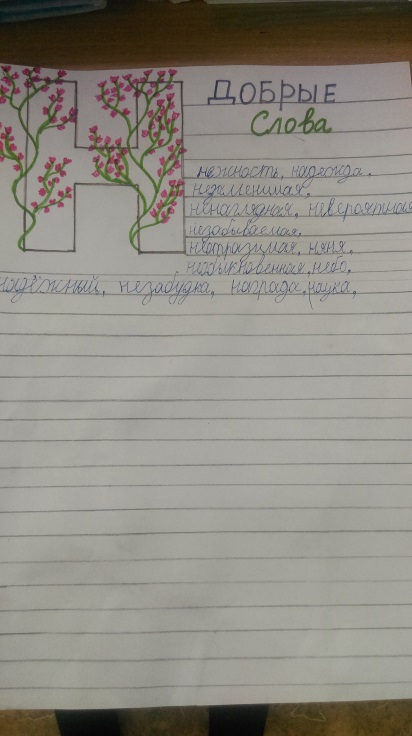 Н
ДОБРЫЕ
Слова
нежность, надежда.
незаменимая.
ненаглядная, невероятная
незабываемая,
неотразимая, няня,
необыкновенная, небо,
надёжный, незабудка, награда, наука,